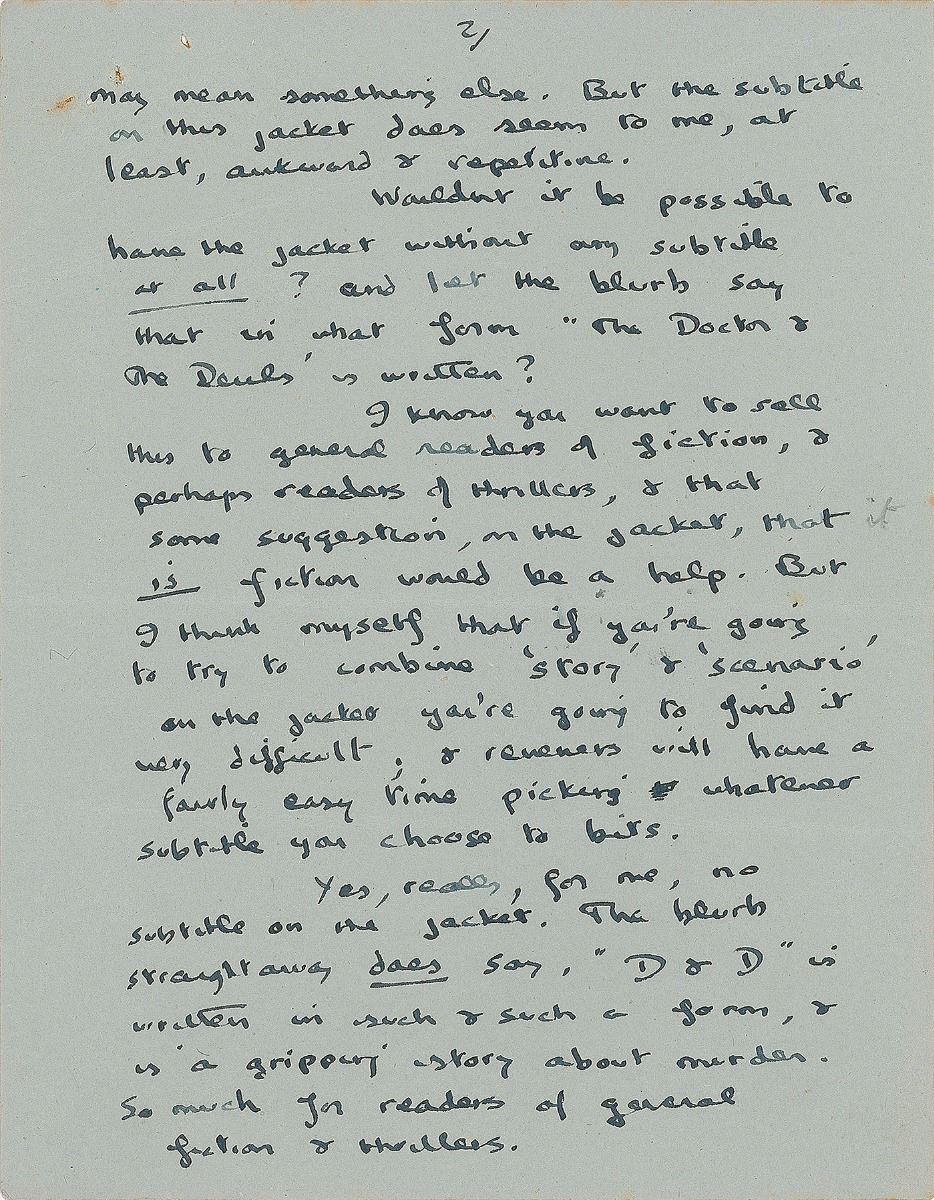 2/
may mean something else. But the subtitle
on this jacket does seem to me, at
least, awkward & repetitive.
Wouldn't it be possible to
have the jacket without any subtitle
at all? and let the blurb say
that in what form "The Doctor &
The Devils' is written?
I know you want to sell
this to general readers of fiction, &
perhaps readers of thrillers, & that
some suggestion, on the jacket, that it
is fiction would be a help. But
I think myself that if you're going
to try to combine 'story' & 'scenario',
on the jacket you're going to find it
very difficult; & reviewers will have a
fairly easy time picking whatever
subtitle you choose to bits.
Yes, really, for me, no
subtitle on the jacket. The blurb
straightaway does say, "D & D" is
written in such & such a form, &
is a gripping story about murder.
So much for readers of general
fiction & thrillers.